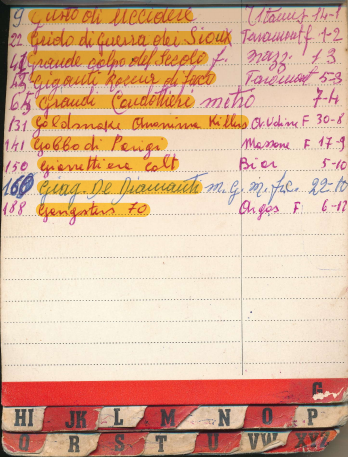 9 Gusto di Uccidere Titanus 14-1
22 Grido di guerra dei Sioux Paramount f. 1-2
41 Grande colpo del Secolo f. 1 3
Giganti Rocur di 5-3
65 Grandi Condottieri metro 7-4
131 Goldsnake Anonima Killers Av. Udine F 30-8
141 Gobbo di Parigi Massone F 17-9
150 Giarrettiera Colt Bior 5-10
166 Grag. De Diamanti m.G.m. f.c. 22-10
188 Gangsters 70 Orgas F 6-12
G
HI JK L M N O P
Q R S T U VW XYZ